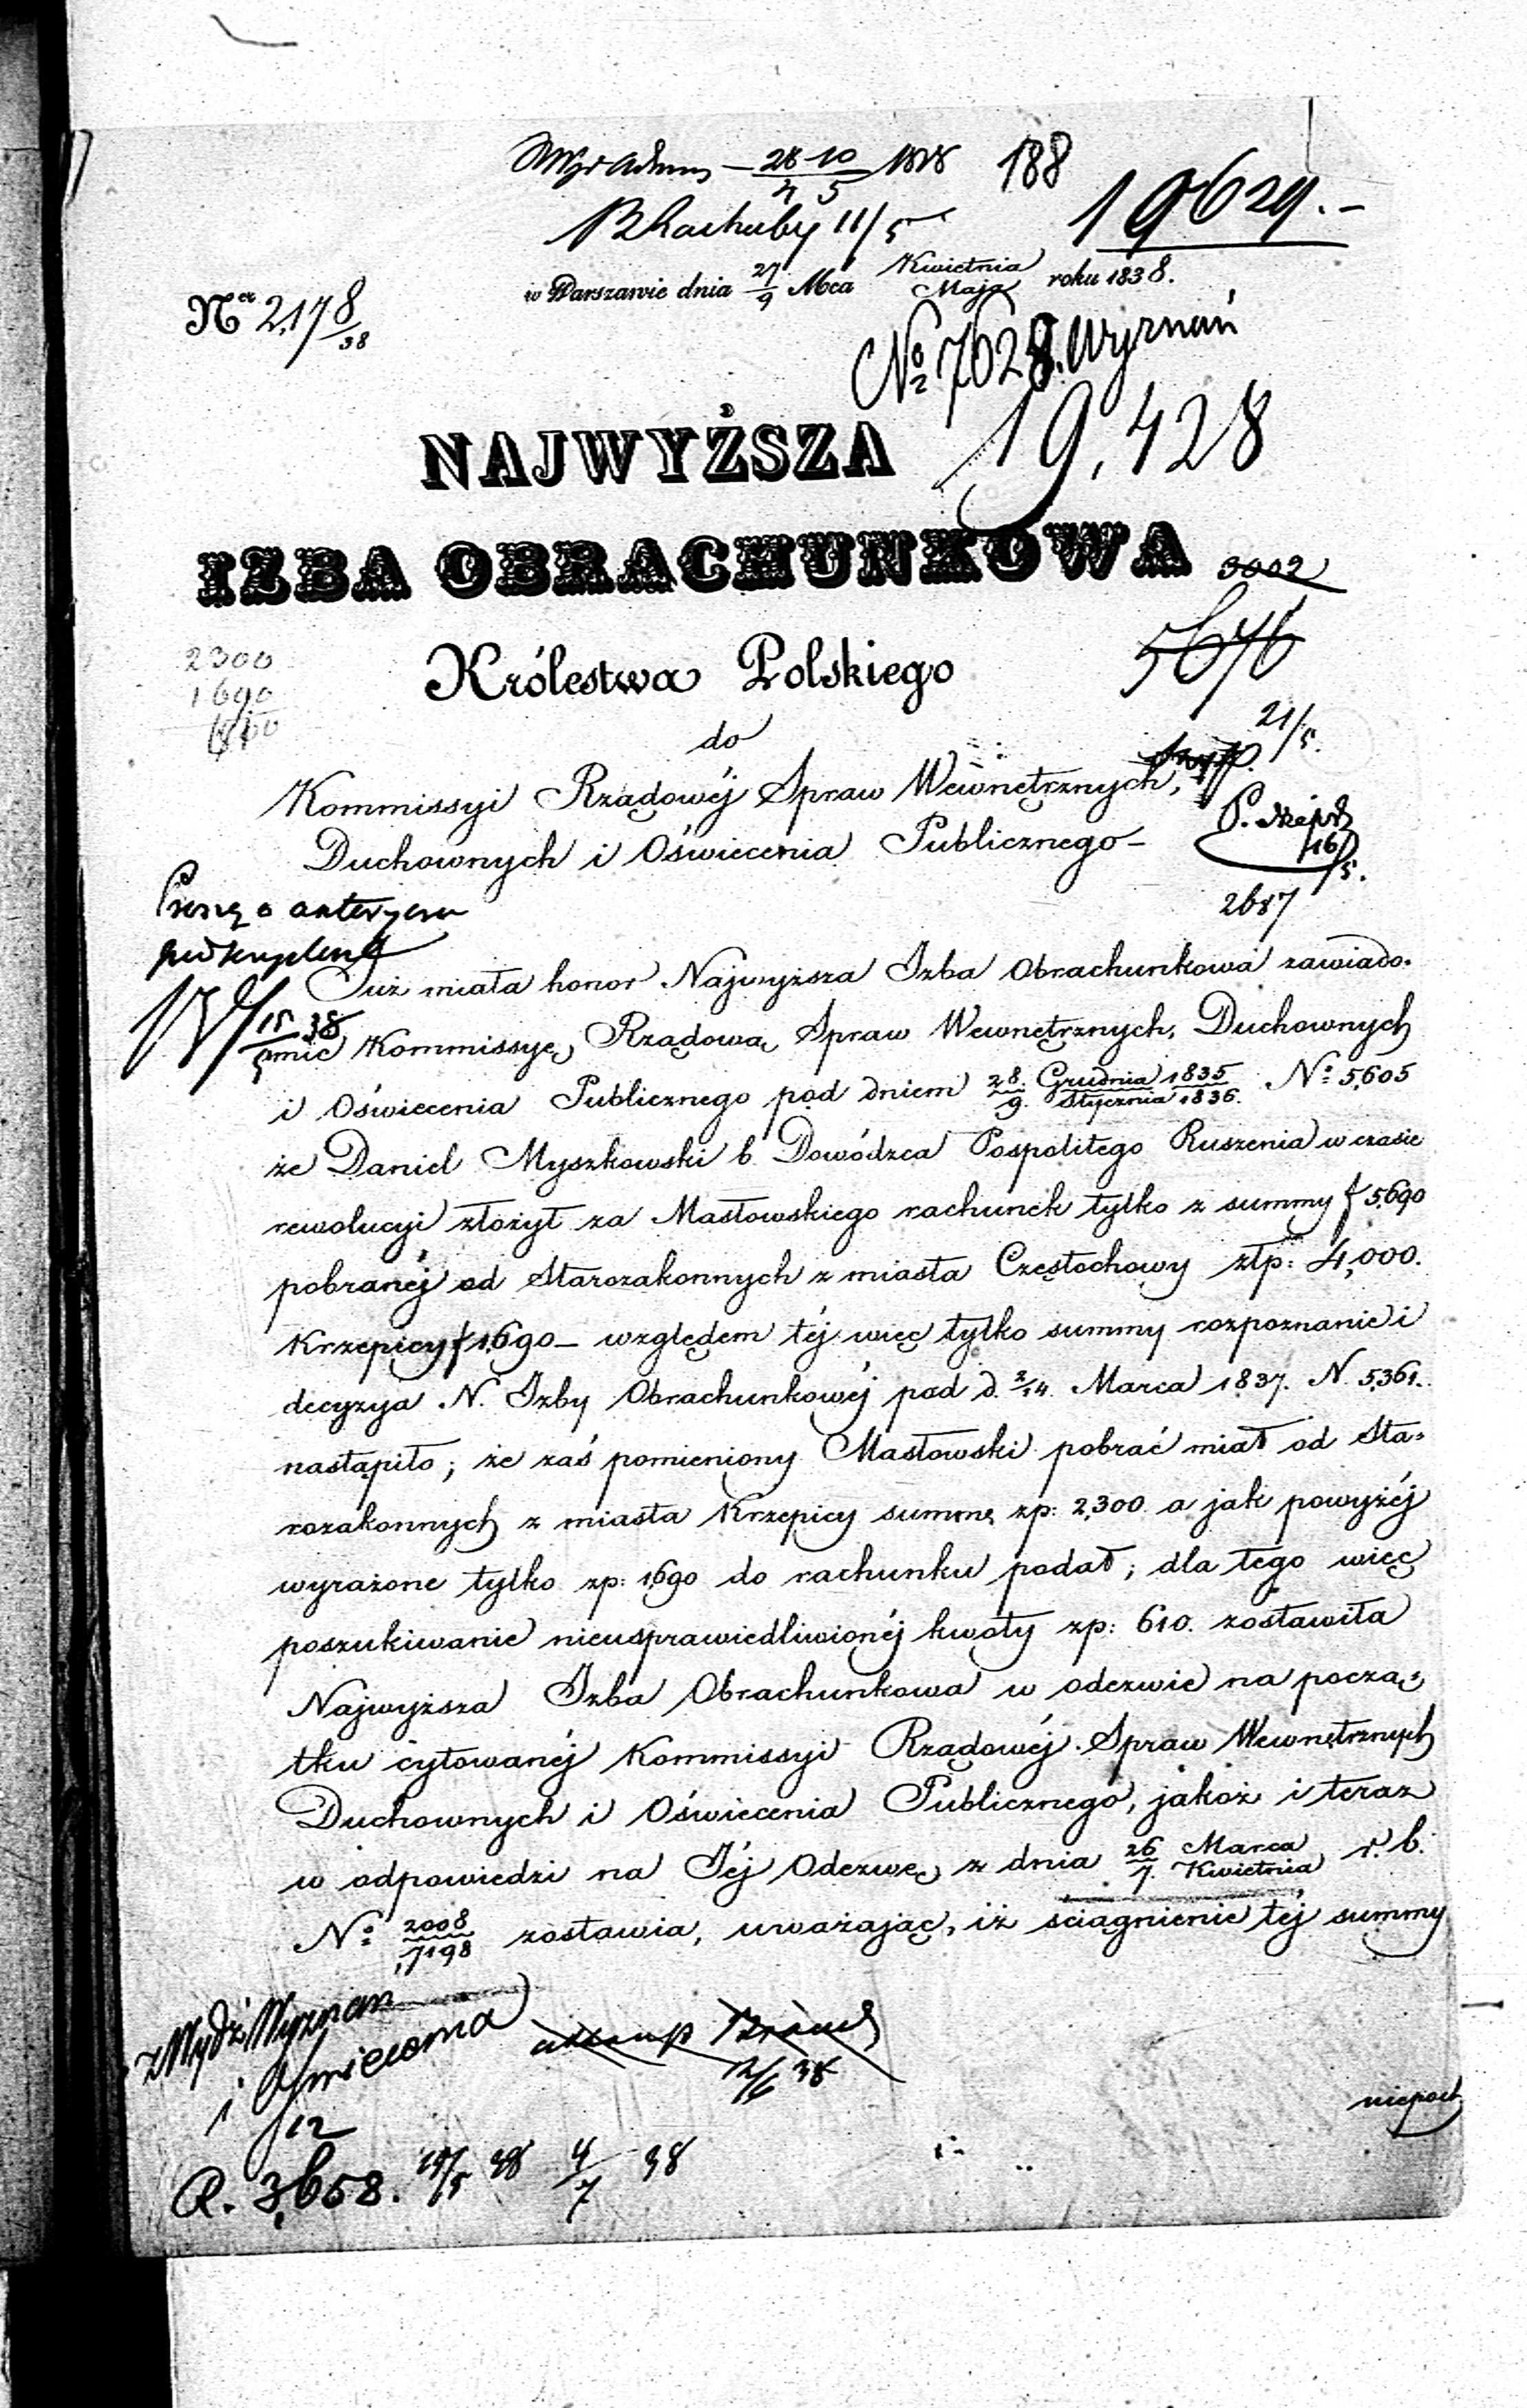 28 10 1838
4 5
188
Rachuby 11/5
19629.-
w Warszawie dnia 27/9 Mca Kwietnia/Maja roku 1838.
No 2,178/38
No 7628. Wyznań
19,428
NAJWYŻSZA
IZBA OBRACHUNKOWA
3002
5676
Królestwa Polskiego
2300
1690
610
do
21/5.
Kommissyi Rządowéj Spraw Wewnętrznych,
16/5.
Duchownych i Oświecenia Publicznego-
2687
Proszę o
Już miała honor Najwyższa Izba Obrachunkowa zawiado-
15/5 38
mić Kommissyę Rządową Spraw Wewnętrznych, Duchownych
i Oświecenia Publicznego pod dniem 28. Grudnia 1835/9. Stycznia 1836. No 5,605
że Daniel Myszkowski b. Dowódzca Pospolitego Ruszenia w czasie
rewolucyi złożył za Masłowskiego rachunek tylko z summy f 5,690
pobranéj od Starozakonnych z miasta Częstochowy złp: 4,000.
Krzepicy f 1,690 - względem téj więc tylko summy rozpoznanie i
decyzya N. Izby Obrachunkowéj pod d. 2/14. Marca 1837. N. 5,361.
nastąpiło; że zaś pomieniony Masłowski pobrać miał od Sta-
rozakonnych z miasta Krzepicy summę zp: 2,300. a jak powyżéj
wyrażone tylko zp: 1,690 do rachunku podał; dla tego więc
poszukiwanie nieusprawiedliwionéj kwoty zp: 610. zostawiła
Najwyższa Izba Obrachunkowa w odezwie na począ-
tku cytowanéj Kommissyi Rządowéj Spraw Wewnętrznych
Duchownych i Oświecenia Publicznego, jakoż i teraz
w odpowiedzi na Jéj Odezwę z dnia 26 Marca/7. Kwietnia r. b.
No 2008/7198 zostawia, uważając, iż ściągnienie téj summy
z Wydz: Wyznan
i Oświecenia
12/6 38
niepod
12
R. 3,658. 19/5 38 4/7 38